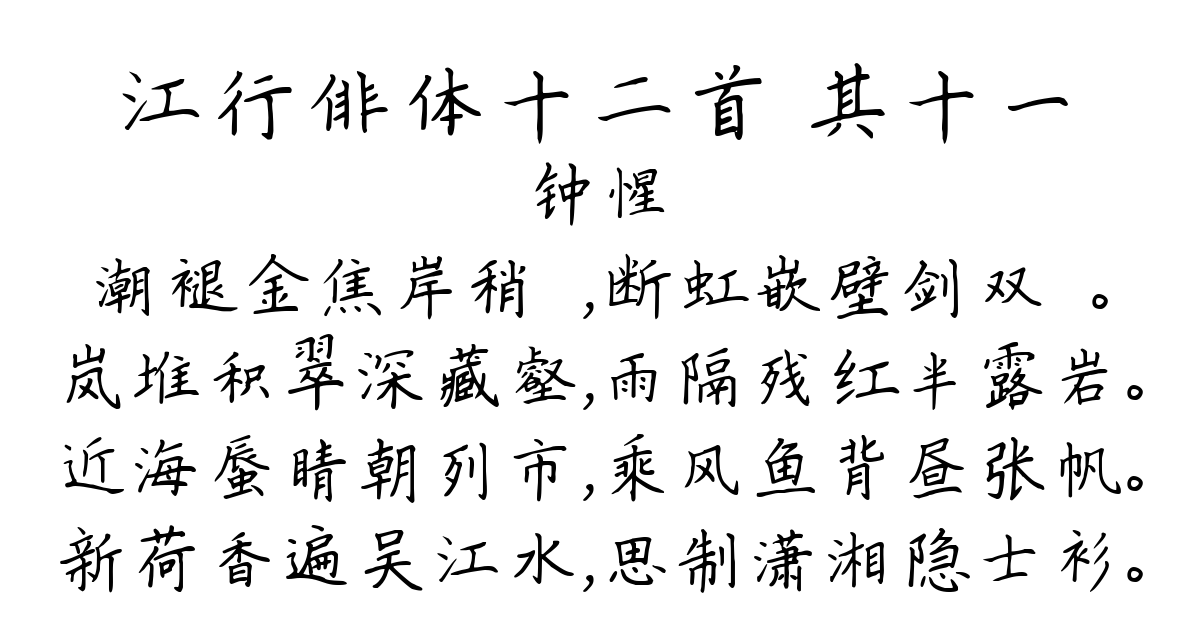 江行俳体十二首 其十一
钟惺
潮褪金焦岸稍 ,断虹嵌壁剑双 。
岚堆积翠深藏壑,雨隔残红半露岩。
近海蜃晴朝列市,乘风鱼背昼张帆。
新荷香遍吴江水,思制潇湘隐士衫。